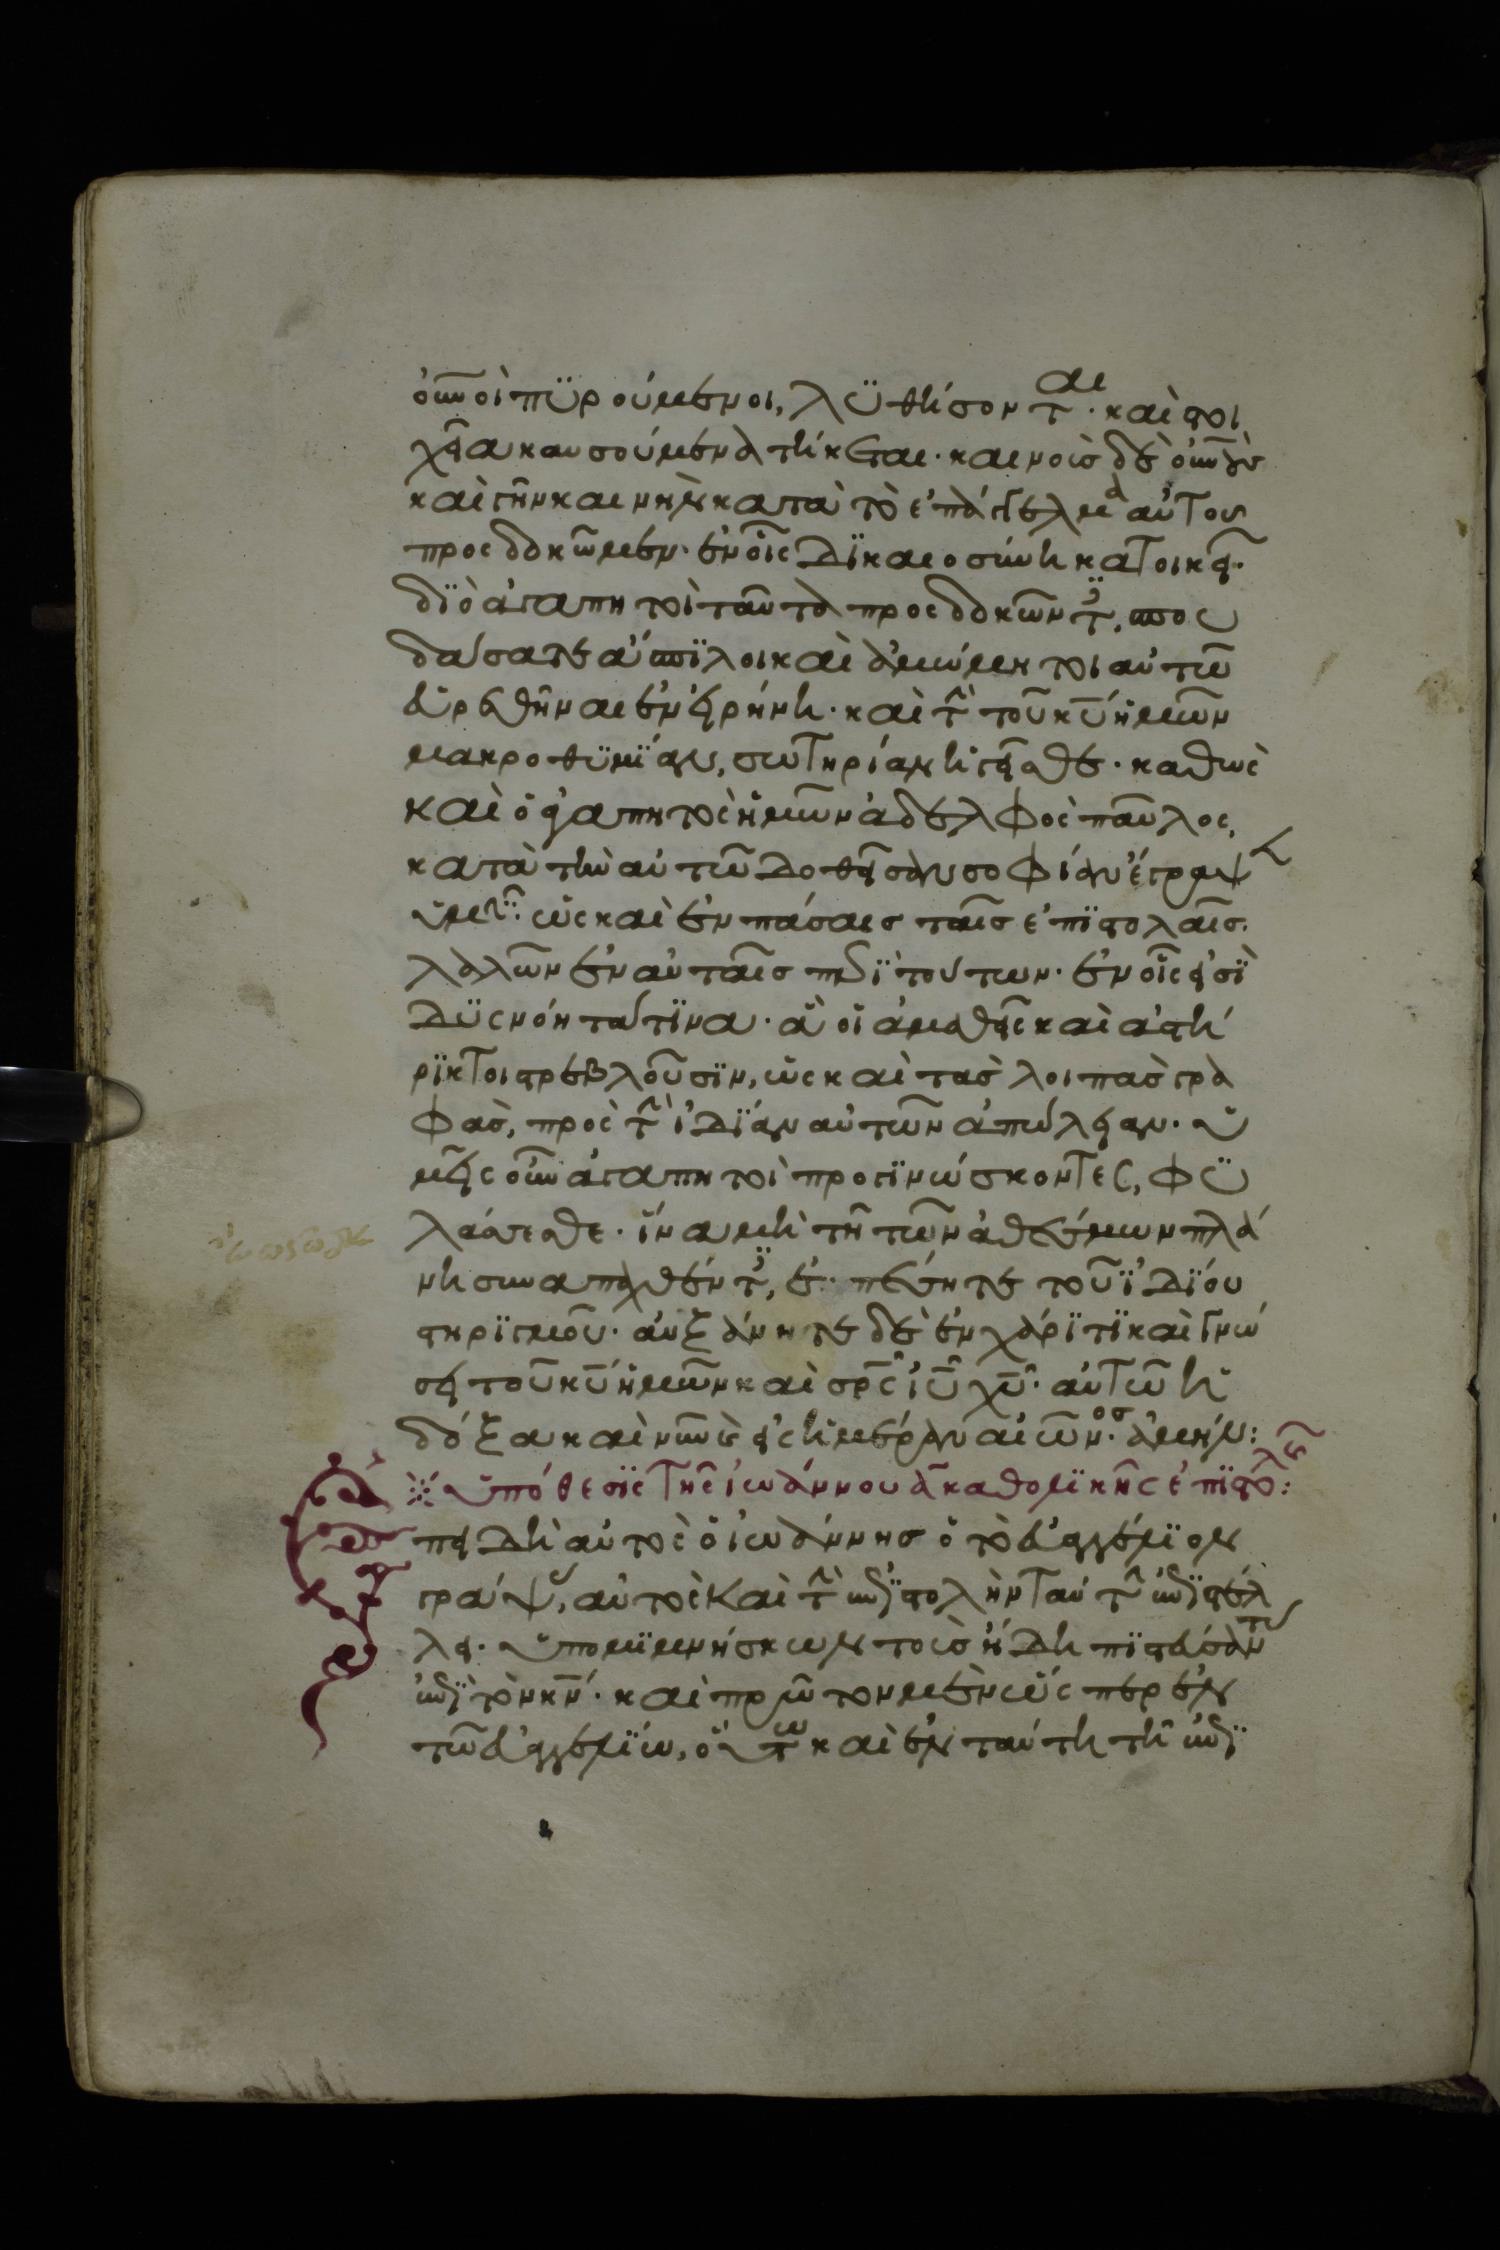 οὐνοὶ πυρούμενοι, λυθήσονται· καὶ στοι
χεῖα καυσούμενα τήκεται· καινοὺς δὲ οὐνοὺς
καὶ γῆν καινὴν κατὰ τὸ ἐπάγγελμα αὐτοῦ
προσδοκῶμεν· ἐν οἷς δικαιοσύνη κατοικεῖ·
διὸ ἀγαπητοὶ ταῦτα προσδοκῶντες, σπου
δάσατε ἄσπιλοι καὶ ἀμώμητοι αὐτῶ
εὑρεθῆναι ἐν εἰρήνη· καὶ τὴν τοῦ κ̅υ̅ ἡμῶν
μακροθυμίαν, σωτηρίαν ἡγεῖσθε· καθὼς
καὶ ὁ ἀγαπητὸς ἡμῶν ἀδελφὸς παῦλος,
κατὰ τὴν αὐτῶ δοθεῖσαν σοφίαν ἔγραψεν
ὑμῖν· ὡς καὶ ἐν πάσαις ταῖς ἐπιστολαῖς·
λαλῶν ἐν αὐταῖς περὶ τούτων· ἐν οἷς εἰσὶ
δυσνόητά τινα· ἃ οἱ ἀμαθεῖς καὶ ἀστή
ρικτοι στρεβλοῦσιν, ὡς καὶ τὰς λοιπὰς γρα
φὰς, πρὸς τὴν ἰδίαν αὐτῶν ἀπώλειαν· ὑ
μεῖς οὖν ἀγαπητοὶ προγινώσκοντες, φυ
λάσσεσθε· ἵνα μὴ τῆ τῶν ἀθέσμων πλά
νη συναπαχθέντες, ἐκπέσητε τοῦ ἰδίου
στηριγμοῦ· αὐξάνητε δὲ ἐν χάριτι καὶ γνώ
σει τοῦ κ̅υ̅ ἡμῶν καὶ σ̅ρ̅ς̅ ι̅υ̅ χ̅υ̅· αὐτῶ ἡ
δόξα καὶ νῦν καὶ εἰς ἡμέραν αἰῶνος· ἀμήν:
ὑπόθεσις τῆς ἰωάννου α̅ καθολικῆς ἐπιστολῆς:
Ἐπειδὴ αὐτὸς ὁ ἰωάννης ὁ τὸ εὐαγγέλιον
γράψας, αὐτὸς καὶ τὴν ἐπιστολὴν ταύτην ἐπιστέλ
λει· ὑπομιμνήσκων τοὺς ἤδη πιστεύσαντας
ἐπὶ τὸν κ̅ν̅· καὶ πρῶτον μὲν ὥσπερ ἐν
τῶ εὐαγγελίω, οὕτω καὶ ἐν ταύτη τῆ ἐπι